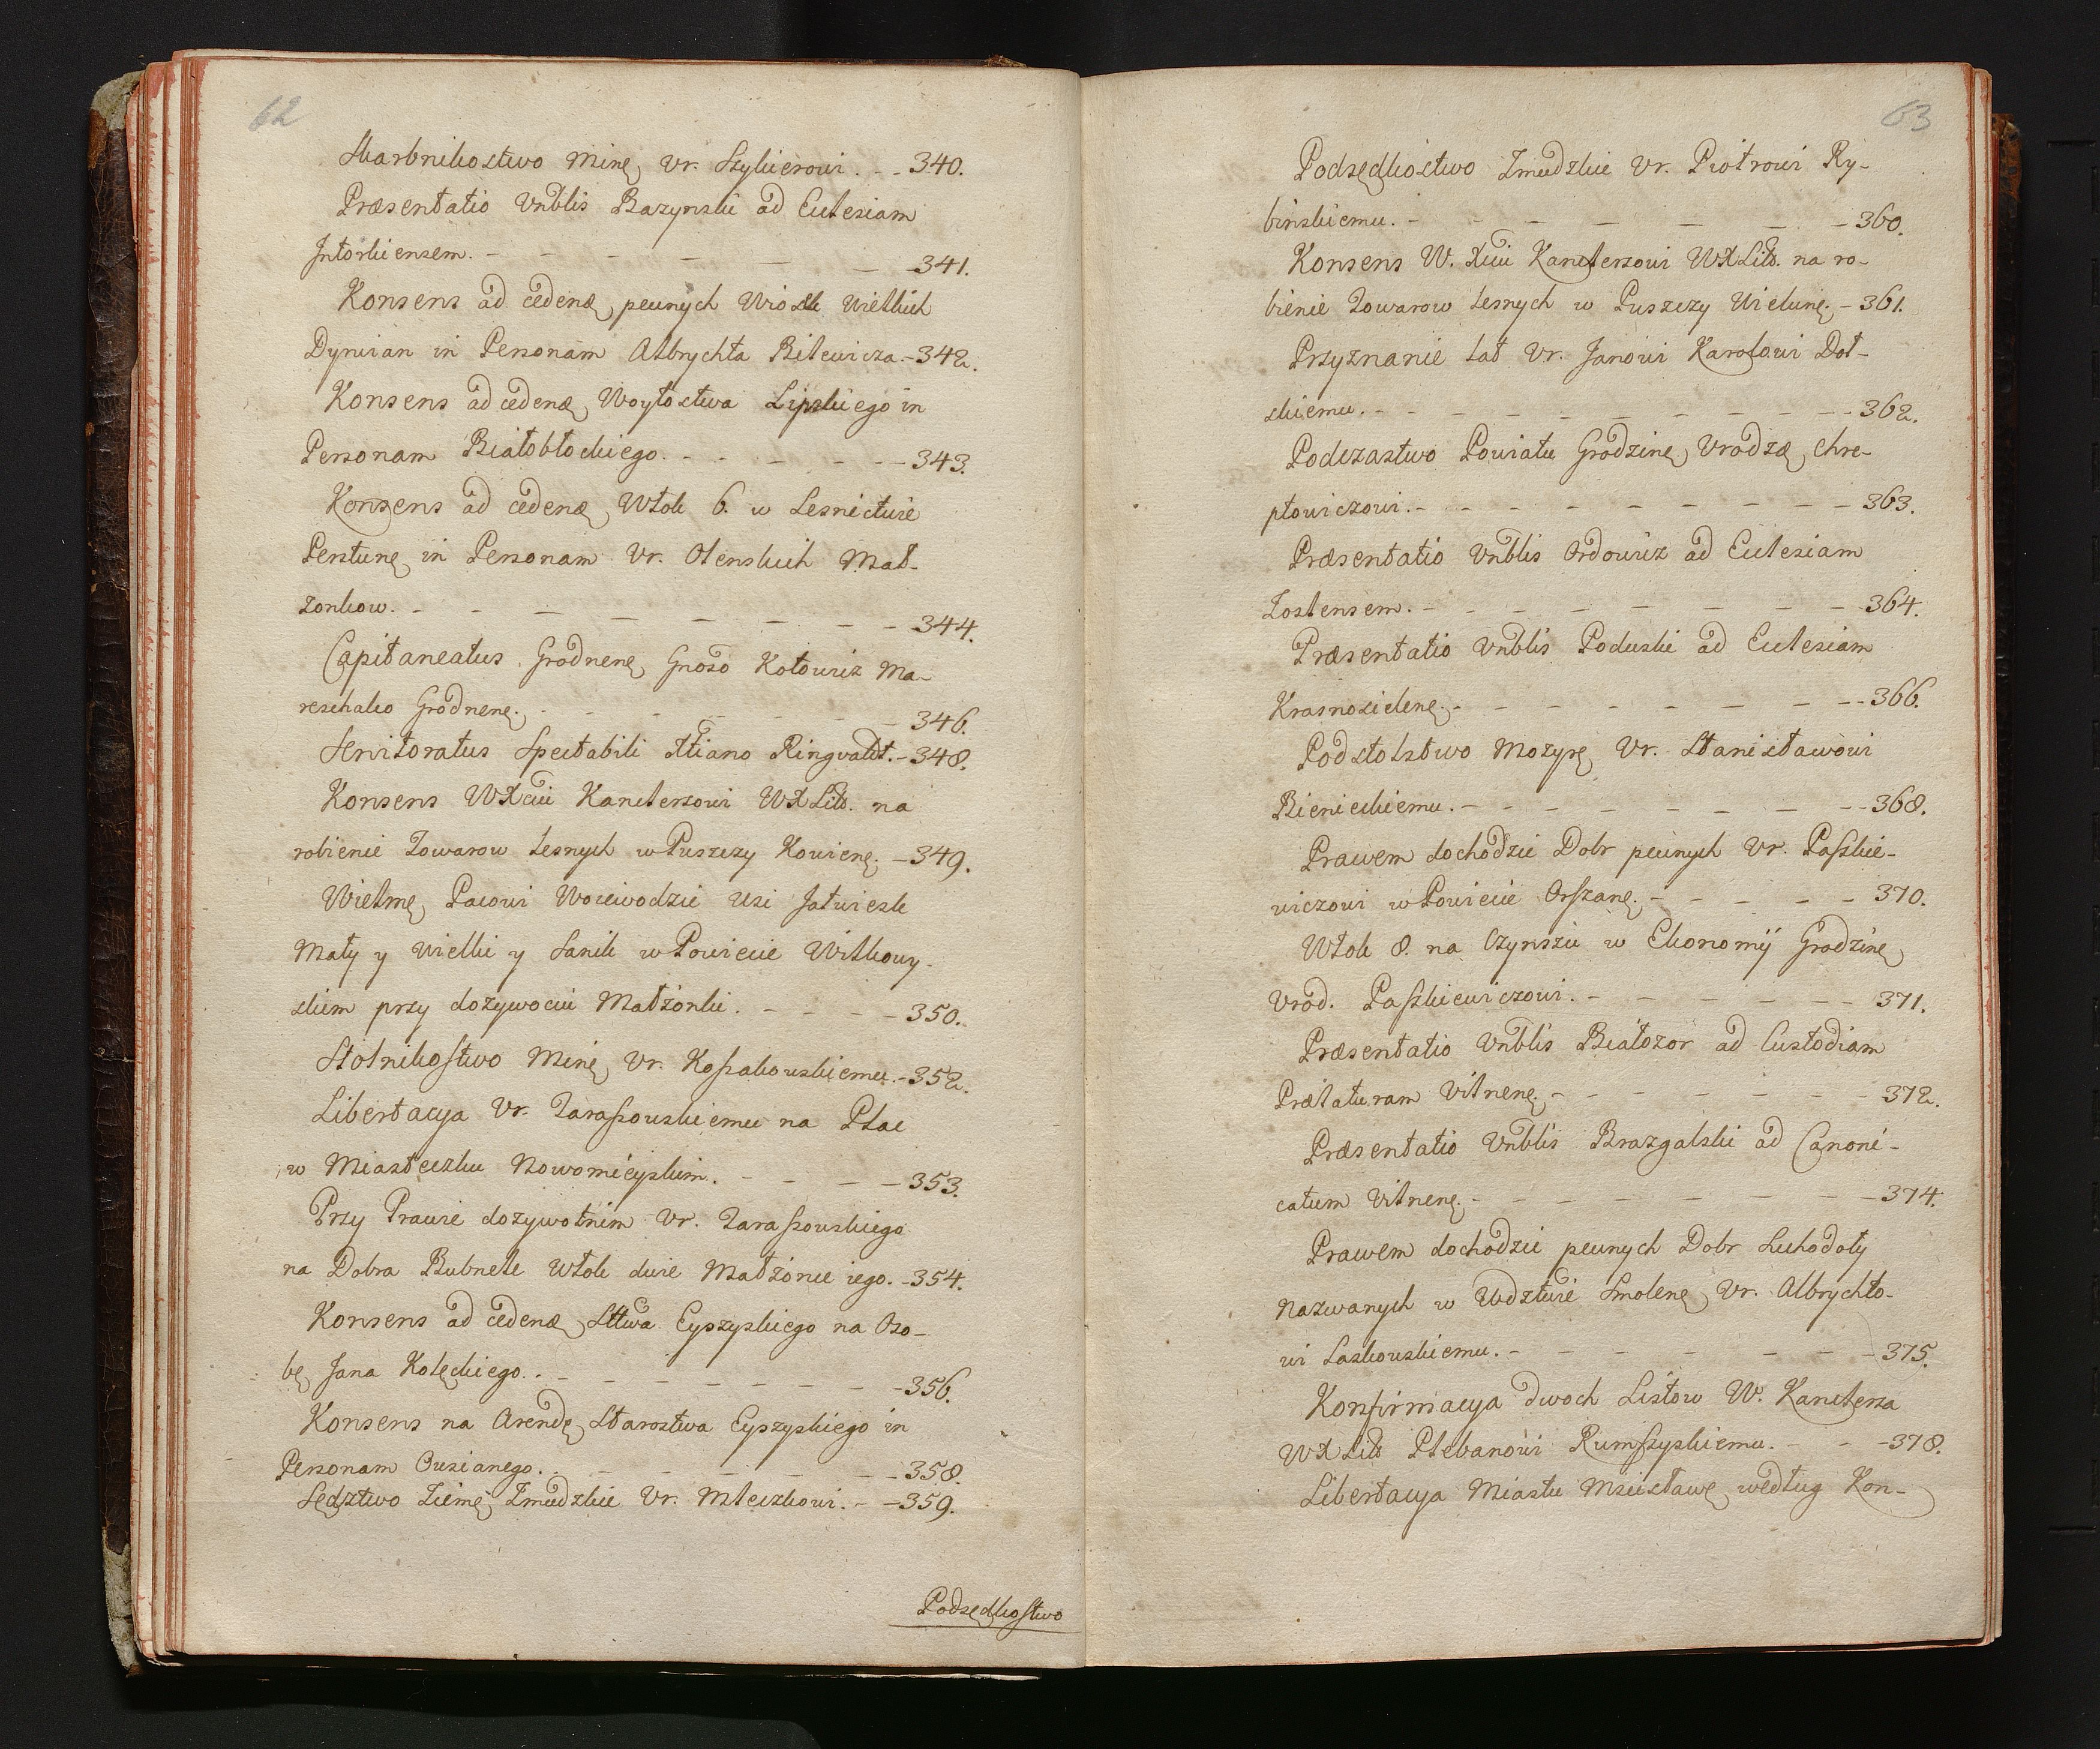 62
Skarbnikostwo Minę Ur. Szykierowi. - - 340.
Præsentatio Vnblis Bazynski ad Ecclesiam
Intorkiensem. - - - - - - 341.
Konsens ad cedenæ pewnych Wiosk Wielkich
Dyrwian in Personam Albrychta Bilewicza. - 342.
Konsens ad cedenæ Woytostwa Lipskiego in
Personam Białobłockiego. - - - - - 343.
Konsens ad cedenæ Włok 6. w Lesnictwie
Perstunę in Personam Ur. Olenskich Mał-
zonkow. - - - - - - - - 344.
Capitaneatus Grodnenę Gnoso Kotowicz Ma-
reschalco Grodnenę. - - - - - - 346.
Servitoratus Spectabili Xtiano Ringvaldt. - 348.
Konsens WXciu Kanclerzowi WXLitt. na
robienie Towarow Lesnych w Puszczy Kowienę. - 349.
Wielmę Pacowi Woiewodzie Wsi Jatwiesk
Mały y Wielki y Sanik w Powiecie Wilkowy-
skim przy dozywociu Małżonki. - - - - 350.
Stolnikostwo Minę Ur. Kossakowskiemu. - 352.
Libertacya Ur. Tarassowskiemu na Plac
w Miasteczku Nowomieyskim. - - - - 353.
Przy Prawie dozywotnim Ur. Tarassowskiego
na Dobra Bubnele Włok dwie Małżonce iego. - 354.
Konsens ad cedenæ Sttwa Eyszyskiego na Oso-
bę Jana Kolęckiego. - - - - - - - 356.
Konsens na Arendę Starostwa Eyszyskiego in
Personam Owsianego. - - - - - - 358.
Sędztwo Ziemę Zmudzkie Ur. Mleczkowi. - - 359.
Podsędkostwo
63
Podsędkostwo Zmudzkie Ur. Piotrowi Ry-
binskiemu. - - - - - - - 360.
Konsens W. Xciu Kanclerzowi WXLitt. na ro-
bienie Towarow Lesnych w Puszczy Wielunę. - 361.
Przyznanie Lat Ur. Janowi Karolowi Dol-
skiemu. - - - - - - - - - - 362.
Podczastwo Powiatu Grodzinę Vrodzæ Chre-
ptowiczowi. - - - - - - - - - 363.
Præsentatio Vnblis Ordowicz ad Ecclesiam
Zoslensem. - - - - - - - - 364.
Præsentatio Vnblis Poduski ad Ecclesiam
Krasnosielenę. - - - - - - - 366.
Podstolstwo Mozyrę Ur. Stanisławowi
Bienieckiemu. - - - - - - - - 368.
Prawem dochodzic Dobr pewnych Ur. Paszkie-
wiczowi w Powiecie Orszanę. - - - - - 370.
Włok 8. na Czynszu w Ekonomij Grodzinę
Vrod. Paszkiewiczowi. - - - - - - 371.
Præsentatio Vnblis Białozor ad Custodiam
Prælaturam Vilnenę. - - - - - - 372.
Præsentatio Vnblis Brazgalski ad Canoni-
catum Vilnenę. - - - - - - - - 374.
Prawem dochodzic pewnych Dobr Suchodoły
Nazwanych w Wdztwie Smolenę Ur. Albrychto-
wi Laskowskiemu. - - - - - - - 375.
Konfirmacya dwoch Listow W. Kanclerza
WXLitt Plebanowi Rumszyskiemu. - - - 378.
Libertacya Miastu Mscisławę według Kon-